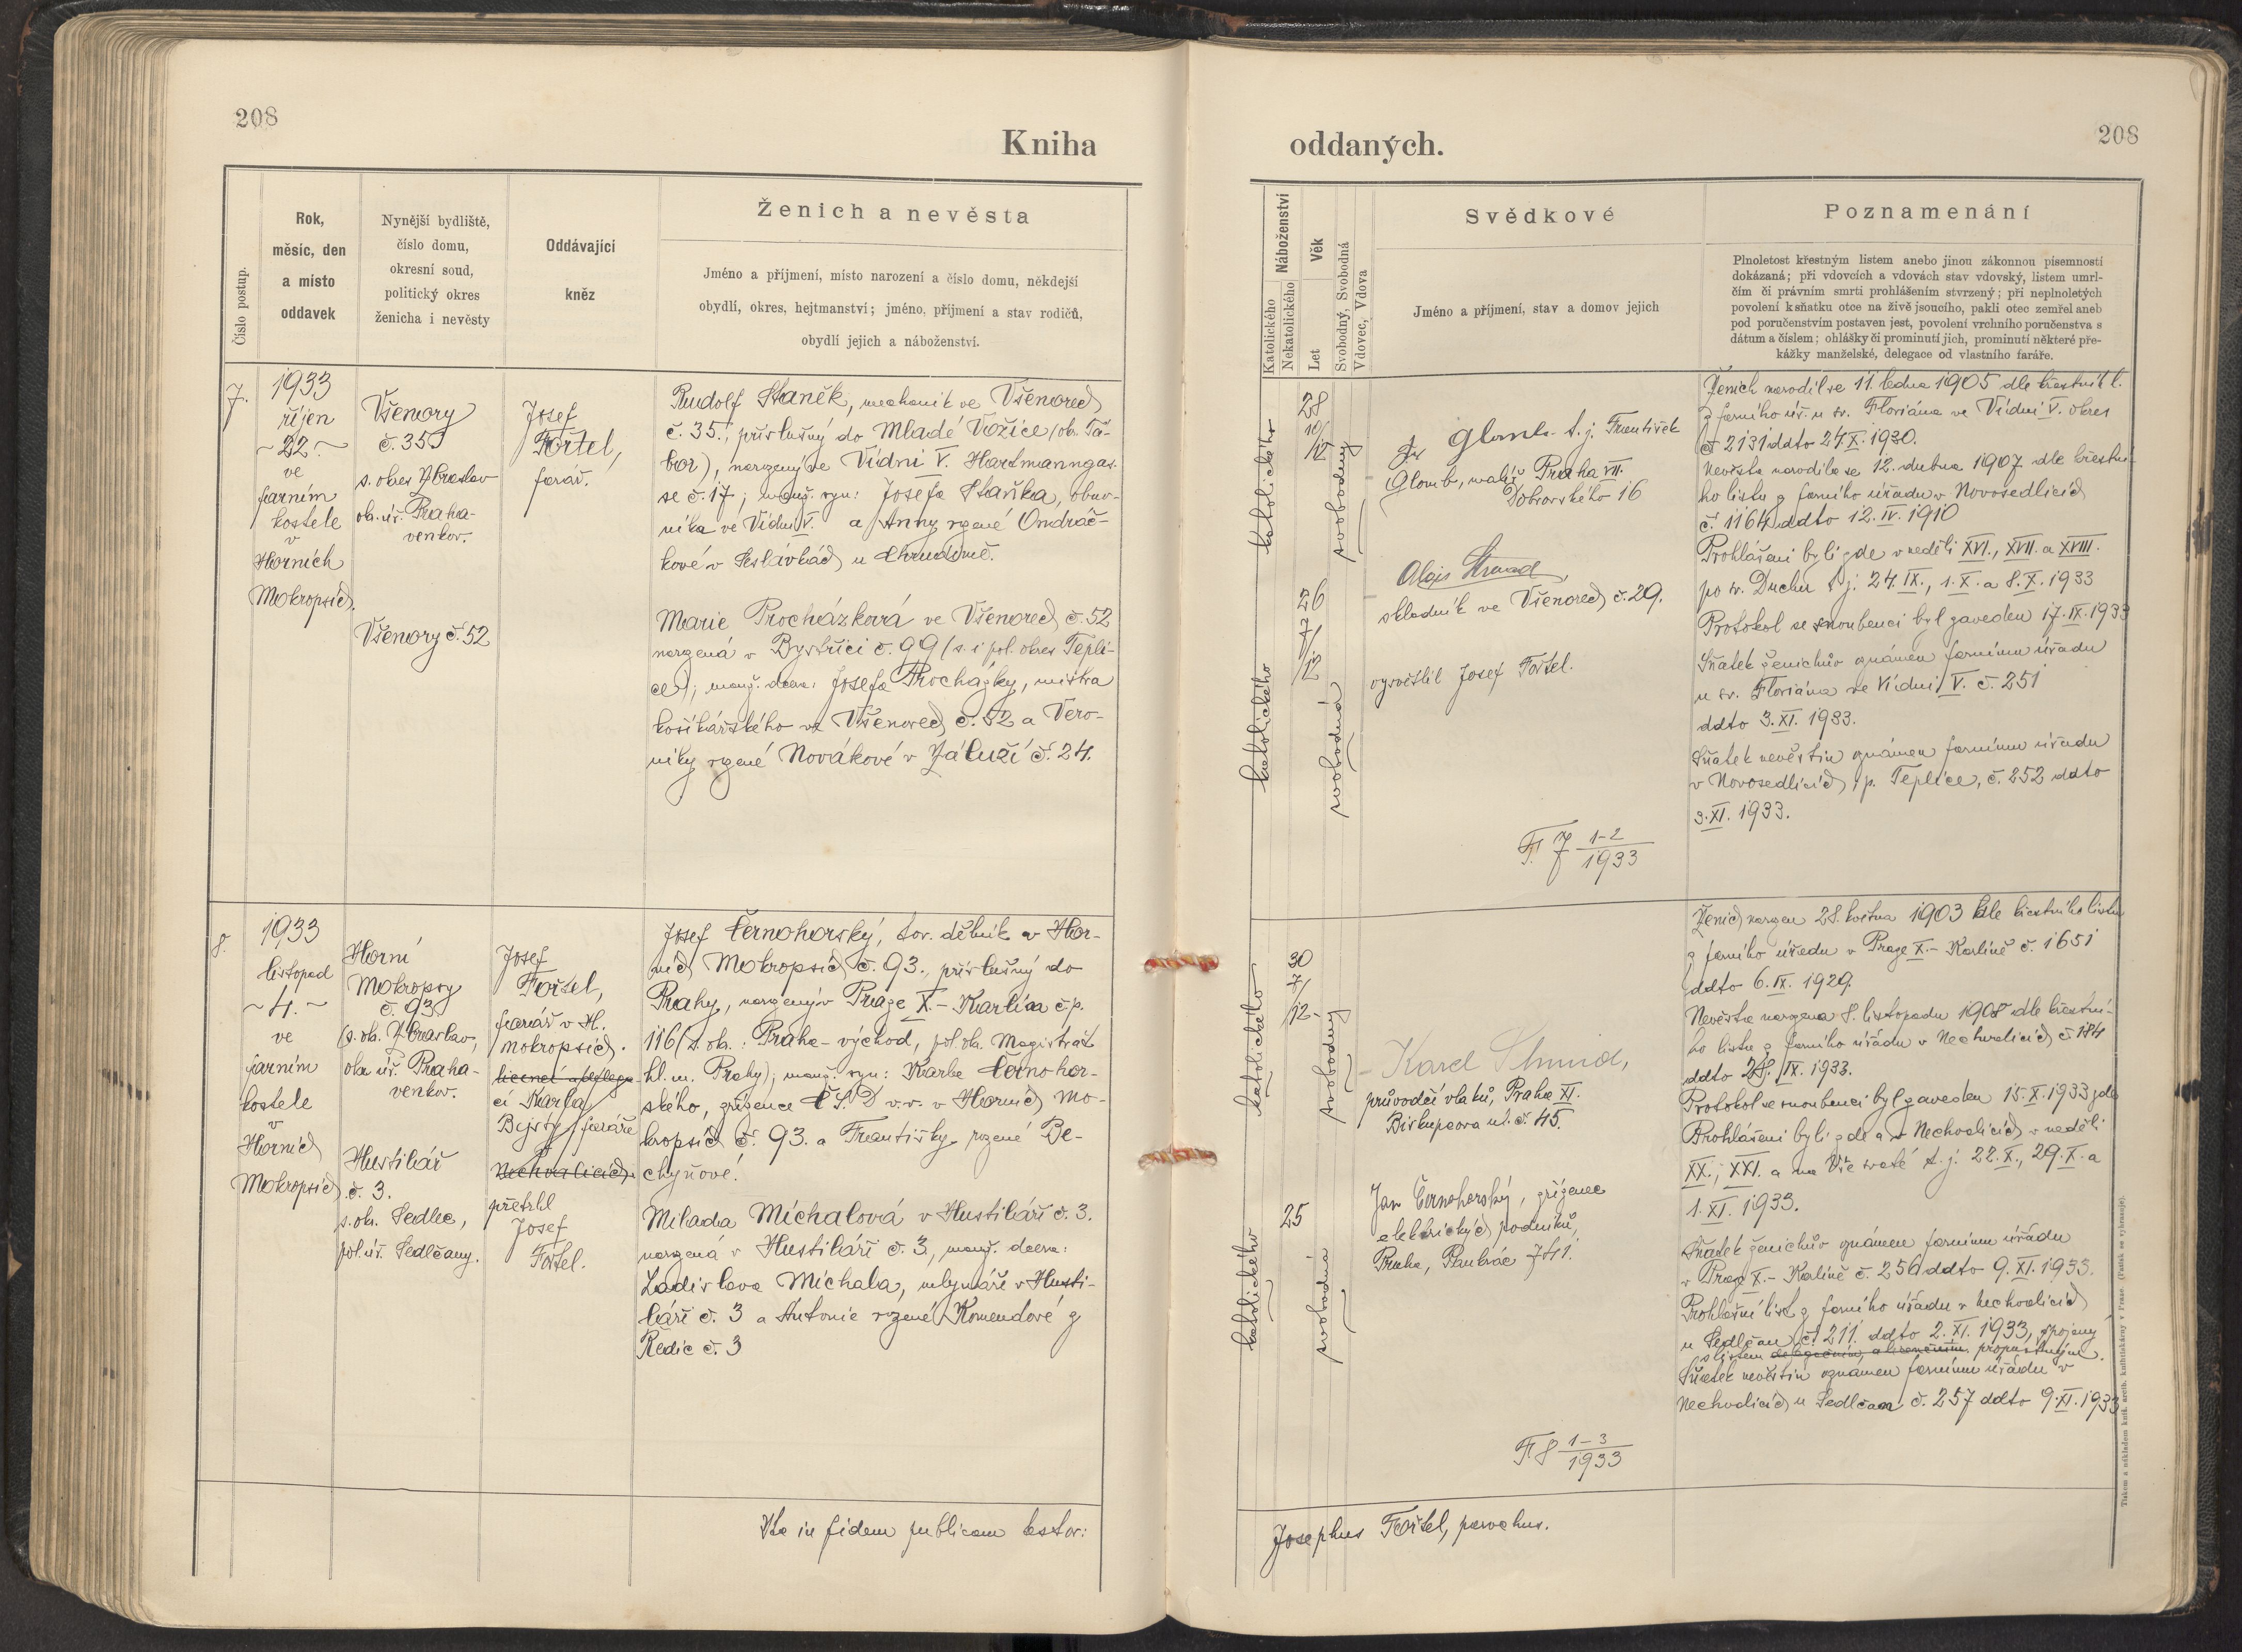 208
Kniha
Číslo postup.
Rok,
měsíc, den
a místo
oddavek
Nynější bydliště,
číslo domu,
okresní soud,
politický okres
ženicha i nevěsty
Oddávající
kněz
Ženich a nevěsta
Jméno a příjmení, místo narození a číslo domu, někdejší
obydlí, okres, hejtmanství; jméno, příjmení a stav rodičů,
obydlí jejich a náboženství.
7.
1933
říjen
~ 22. ~
ve
farním
kostele
v
Horních
Mokropsích.
Všenory
č. 35
s. okres Zbraslav
ok. úř. Praha-
venkov.
Všenory č. 52
Josef
Fořtel,
farář.
Rudolf Staněk, mechanik ve Všenorech
č. 35., příslušný do Mladé Vožice (ok. Tá-
bor), narozený ve Vídni V. Hartmanngas-
se č. 17; manž. syn: Josefa Staňka, obuv-
níka ve Vídni V. a Anny rozené Ondráč-
kové v Seslávkách u Chrudimě.
Marie Procházková ve Všenorech č. 52
narozená v Bystřici č. 99 (s. i pol. okres Tepli-
ce); manž. dcera: Josefa Procházky, mistra
košíkářského ve Všenorech č. 52 a Vero-
niky rozené Novákové v Záluží č. 24.
8.
1933
listopad
~ 4. ~
ve
farním
kostele
v
Horních
Mokropsích
Horní
Mokropsy
č. 93
(s. ok. Zbraslav,
ok. úř. Praha-
venkov.
Hustilář
č. 3.
s. ok. Sedlec,
pol. úř. Sedlčany.
Josef
Fořtel,
farář v H.
Mokropsích.
ci Karla
faráře
Nechvalicích
přetrhl
Josef
Fořtel.
Josef Černohorský, tov. dělník v Hor-
ních Mokropsích č. 93., příslušný do
Prahy, narozený v Praze X. - Karlína čp.
116 (s. ok.: Praha - východ, pol. ok. Magistrát
hl. m. Prahy); manž. syn: Karla Černohor-
ského, zřízence ČSD v. v. v Horních Mo-
kropsích č. 93. a Františky rozené Be-
chyňové.
Milada Míchalová v Hustiláři č. 3.
narozená v Hustiláři č. 3, manž. dcera:
Ladislava Míchala, mlynáře v Husti-
láři č. 3 a Antonie rozené Komendové z
Ředic č. 3
Ita in fidem publicam testor:
208
oddaných.
Náboženství
Katolického
Nekatolického
Věk
Let
Svobodný, Svobodná
Vdovec, Vdova
Svědkové
Jméno a příjmení, stav a domov jejich
Poznamenání
Plnoletost křestným listem anebo jinou zákonnou písemností
dokázaná; při vdovcích a vdovách stav vdovský, listem umrl-
čím či právním smrti prohlášením stvrzený; při neplnoletých
povolení k sňatku otce na živě jsoucího, pakli otec zemřel aneb
pod poručenstvím postaven jest, povolení vrchního poručenstva s
dátum a číslem; ohlášky či prominutí jich, prominutí některé pře-
kážky manželské, delegace od vlastního faráře.
katolického
28
svobodný
Glomb t. j. František
Glomb, malíř Praha VII.
Dobrovského 16
Alois Strnad,
skladník ve Všenorech č. 29.
vysvětlil Josef Fořtel.
katolického
26
7/
/12
svobodná
F. 7 1-2
1933
Ženich narodil se 11. ledna 1905 dle křestního l.
z farního úř. u sv. Floriána ve Vídni V. okres
č. 2131 ddto 27. X. 1930.
Nevěsta narodila se 12. dubna 1907 dle křestní-
ho listu z farního úřadu v Novosedlicích
č. 1164 ddto 12. IV. 1910
Prohlášeni byli zde v neděli XVI., XVII. a XVIII.
po sv. Duchu t. j. 24. IX., 1. X. a 8. X. 1933
Protokol se snoubenci byl zaveden 17. IX. 1933
Sňatek ženichův oznámen farnímu úřadu
u sv. Floriána ve Vídni V. č. 251
ddto 3. XI. 1933.
Sňatek nevěstin oznámen farnímu úřadu
v Novosedlicích, p. Teplice, č. 252 ddto
3. XI. 1933.
katolického
30
7/
/12
svobodný
Karel Schmid,
průvodčí vlaků, Praha XI.
Biskupcova ul. č. 45.
katolického
25
svobodná
Jan Černohorský, zřízenec
elektrických podniků,
Praha, Pankrác 741.
F. 8 1-3
1933
Ženich narozen 28. května 1903 dle křestního listu
z farního úřadu v Praze X. - Karlíně č. 1651
ddto 6. IX. 1929.
Nevěsta narozena 8. listopadu 1908 dle křestní-
ho listu z farního úřadu v Nechvalicích č. 184
ddto 28. IX. 1933.
Protokol se snoubenci byl zaveden 15. X. 1933 zde
Prohlášeni byli zde a v Nechvalicích v neděli
XX., XXI. a na Vše svaté t. j. 22. X., 29. X. a
1. XI. 1933.
Sňatek ženichův oznámen farnímu úřadu
v Praze X. - Karlíně č. 256 ddto 9. XI. 1933.
Prohlašní list z farního úřadu v Nechvalicích
u Sedlčan č. 211. ddto 2. XI. 1933, spojený
s listem propustným.
Sňatek nevěstin oznámen farnímu úřadu v
Nechvalicích u Sedlčan č. 257 ddto 9. XI. 1933
Josephus Fořtel, parochus.
Tiskem a nákladem kníž. arcib. knihtiskárny v Praze. (Patisk se vyhrazuje).